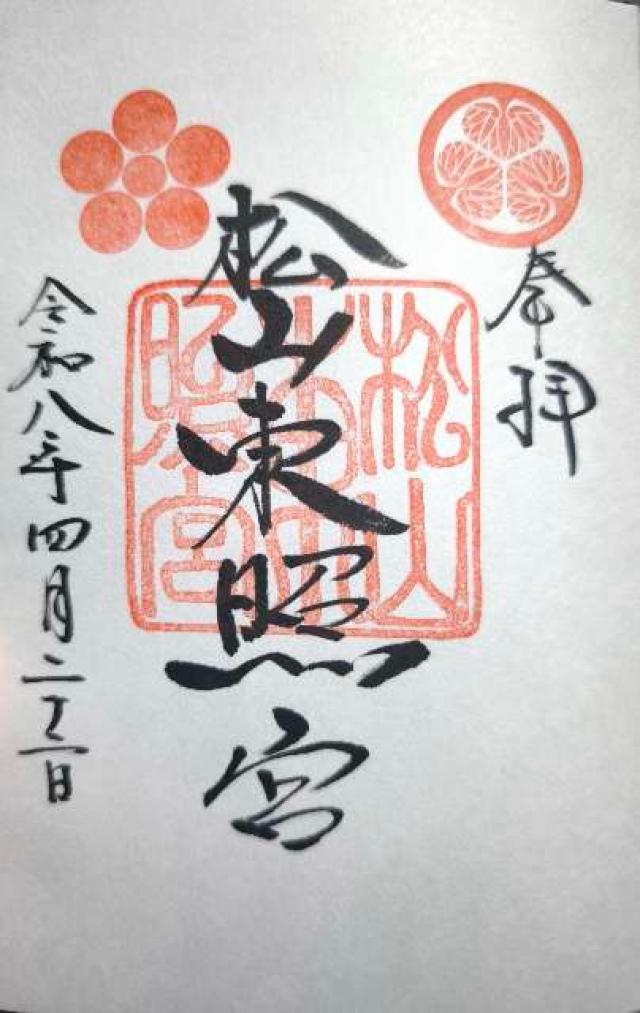 奉拝
松山東照宮
松山
東
照宮
令和八年四月二十二日